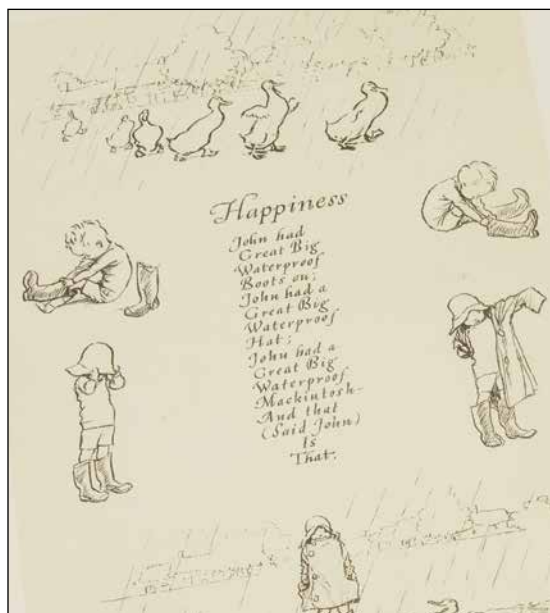 Happiness
John had
Great Big
Waterproof
Boots on;
John had a
Great Big
Waterproof
Hat;
John had a
Great Big
Waterproof
Mackintosh-
And that
(Said John)
Is
That.